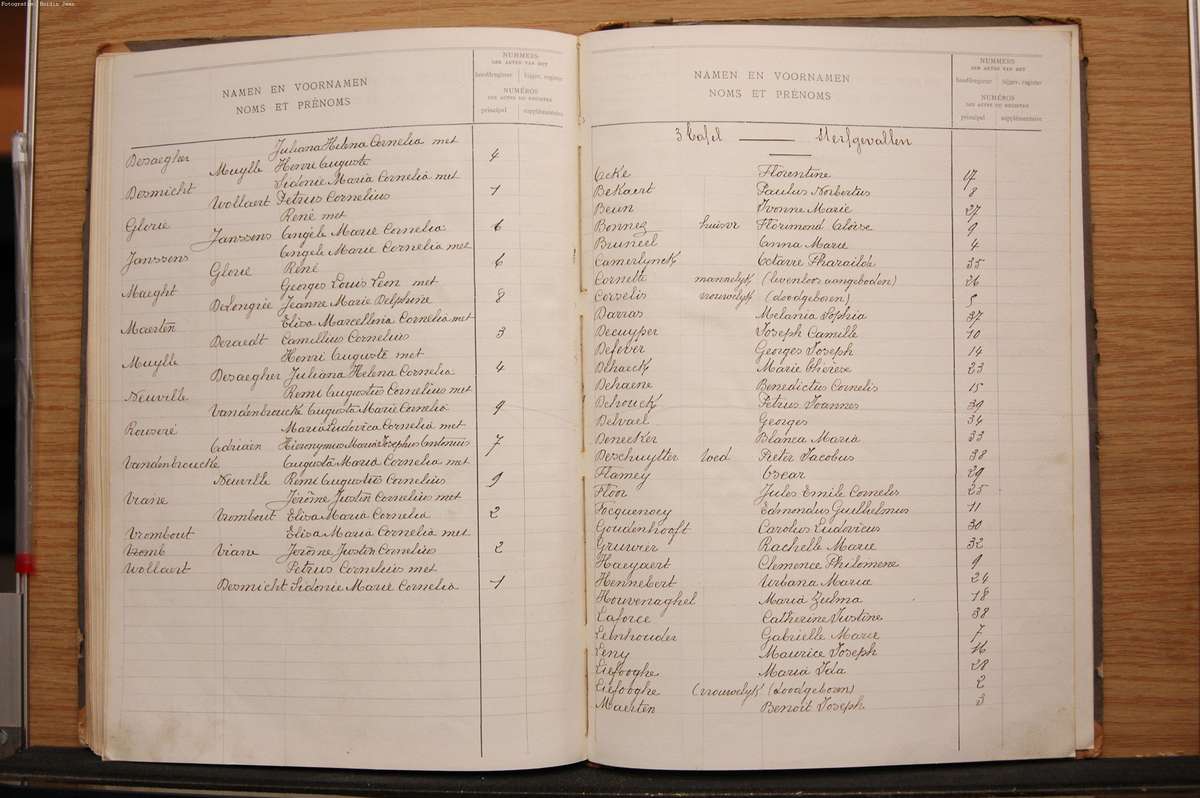 Fotografie: Boidin Jean
NAMEN EN VOORNAMEN
NOMS ET PRÉNOMS
NUMMERS
DER AKTEN VAN HET
hoofdregister bijgev. register
NUMÉROS
DES ACTES DU REGISTRE
principal supplémentaire
Desaegher Juliana Helena Cornelia met 4
Muylle Henri Auguste
Desmicht Sidonie Maria Cornelia met 1
Wollaert Petrus Cornelius
Glorie René met 6
Janssens Angèle Marie Cornelia
Janssens Angele Marie Cornelia met 6
Glorie René
Maeght Georges Louis Léon met 8
Delongrie Jeanne Marie Delphine
Maerten Elisa Marcellina Cornelia met 3
Deraedt Camillius Cornelius
Muylle Henri Auguste met 4
Desaegher Juliana Helena Cornelia
Neuville Remi Augustus Cornelius met 9
Vandenbroucke Augusta Marie Cornelia
Rouseré Maria Ludovica Cornelia met 7
Adriaen Hieronymus Maria Josephus Antonius
Vandenbroucke Augusta Maria Cornelia met 9
Neuville Remi Augustus Cornelius
Viane Jérôme Justin Cornelius met 2
Vrombout Elisa Maria Cornelia
Vrombout Elisa Maria Cornelia met 2
Vromb Viane Jerôme Justin Cornelius
Wollaert Petrus Cornelius met 1
Desmicht Sidonie Marie Cornelia
NAMEN EN VOORNAMEN
NOMS ET PRÉNOMS
NUMMERS
DER AKTEN VAN HET
hoofdregister bijgev. register
NUMÉROS
DES ACTES DU REGISTRE
principal supplémentaire
3 Tafel — Sterfgevallen
Acke Florentine 17
Bekaert Paulus Norbertus 8
Beun Yvonne Marie 27
Bonnez huisvr Florimond Aloïse 9
Bruneel Anna Marie 4
Camerlynck Octavie Pharailde 35
Cornette mannelyk (levenloos aangeboden) 26
Corselis vrouwelyk (doodgeboren) 5
Darras Melania Sophia 37
Decuyper Joseph Camille 10
Defever Georges Joseph 14
Dehaeck Marie Thérèse 23
Dehaene Benedictus Cornelis 15
Dehouck Petrus Joannes 39
Delvael Georges 34
Deneeker Blanca Maria 33
Deschuytter wed Pieter Jacobus 38
Flamey Oscar 29
Flor Jules Emile Cornelis 25
Focquenoey Edmondus Guilhelmus 11
Goudenhooft Carolus Ludovicus 30
Gruwier Rachelle Marie 32
Haeyaert Clemence Philomene 9
Hennebert Urbana Maria 24
Houvenaghel Maria Zulma 18
Laforce Catherine Justine 38
Leinhouder Gabrielle Marie 7
Leny Maurice Joseph 16
Liefooghe Maria Ida 28
Liefooghe (vrouwelyk (doodgeboren) 2
Maerten Benoit Joseph 3